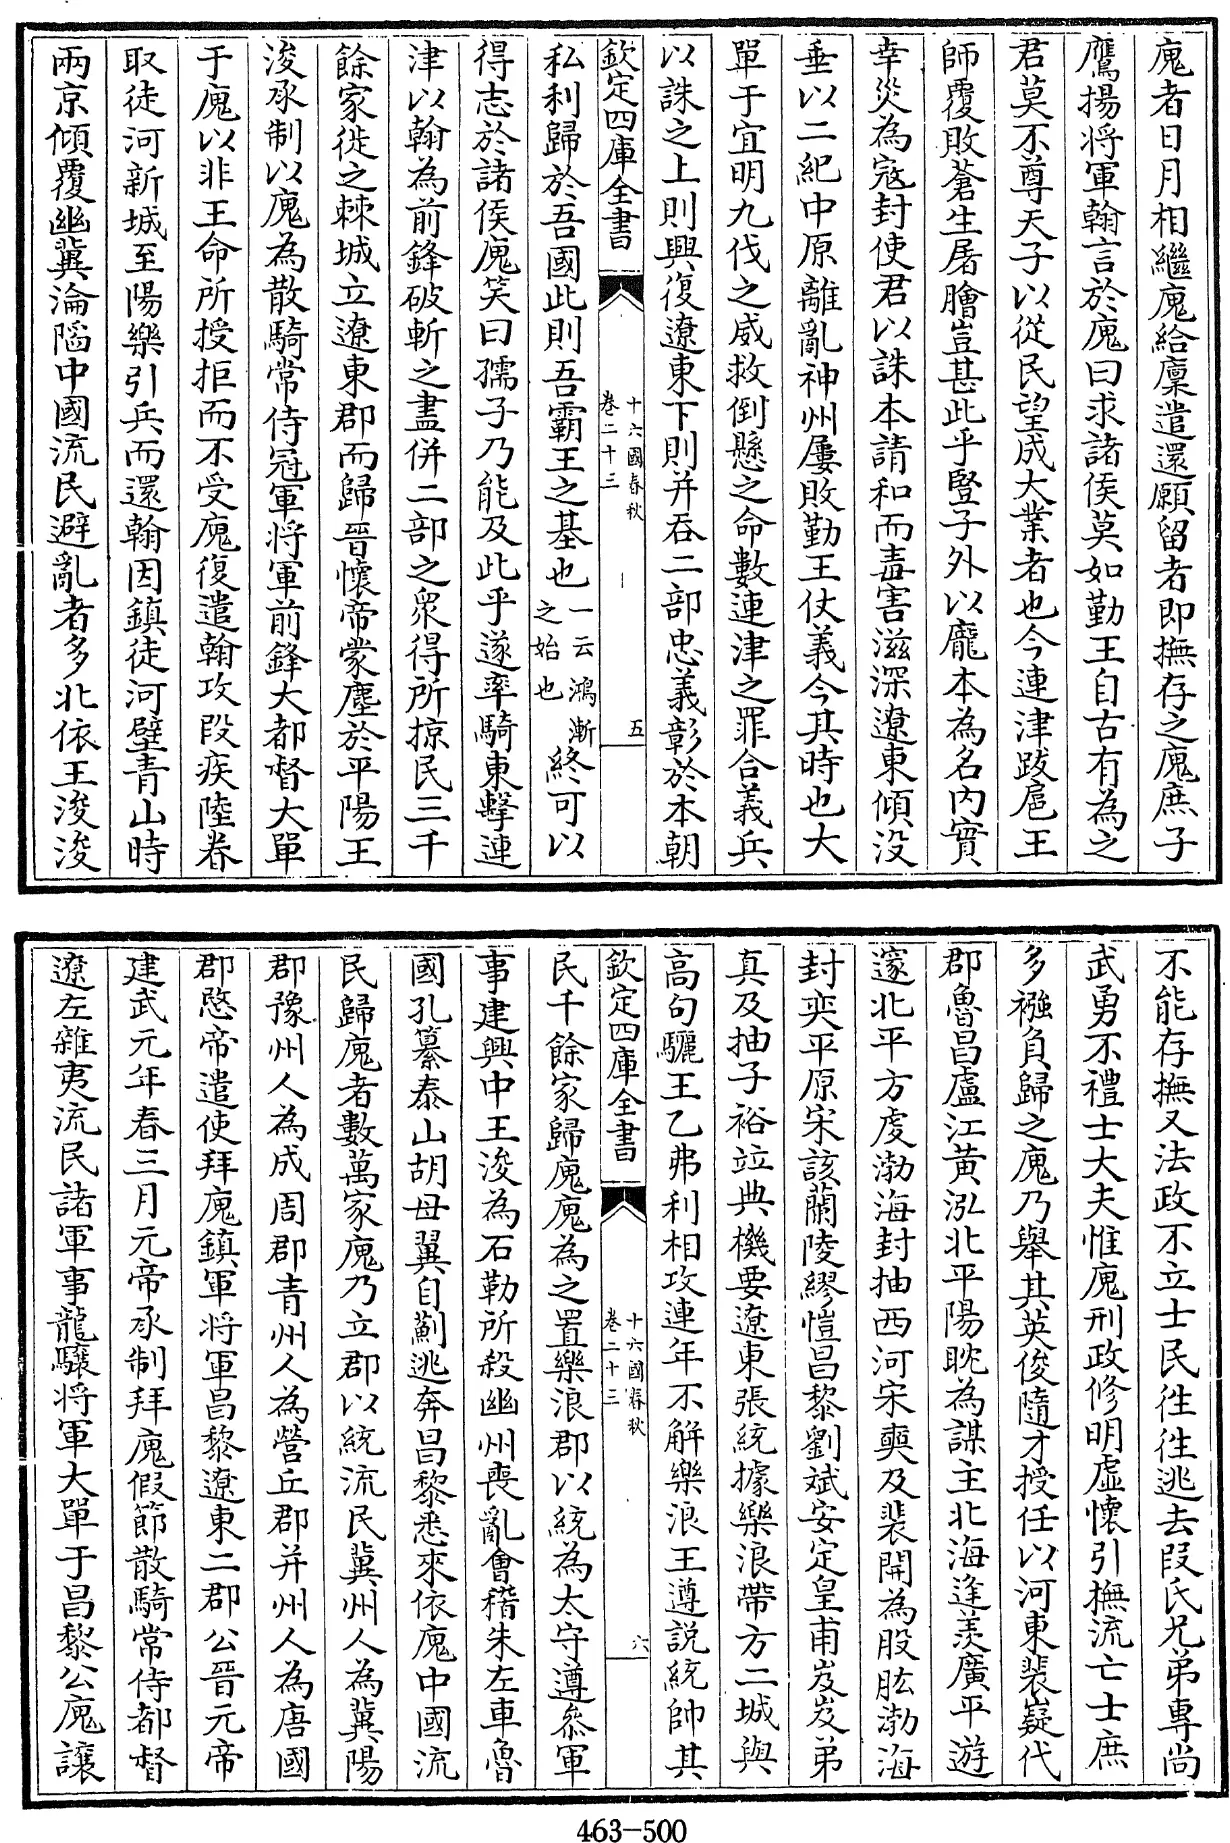 廆者日月相繼廆給廩遣還願留者即撫存之廆庶子
鷹揚将軍翰言於廆曰求諸侯莫如勤王自古有為之
君莫不尊天子以從民望成大業者也今連津跋扈王
師覆敗蒼生屠膾豈甚此乎豎子外以龐本為名内實
幸災為寇封使君以誅本請和而毒害滋深遼東傾没
垂以二紀中原離亂神州屢敗勤王仗義今其時也大
單于宜明九伐之威救倒懸之命數連津之罪合義兵
以誅之上則興復遼東下則并吞二部忠義彰於本朝
欽定四庫全書
十六國春秋
卷二十三
五
私利歸於吾國此則吾霸王之基也一云鴻漸之始也終可以
得志於諸侯廆笑曰孺子乃能及此乎遂率騎東擊連
津以翰為前鋒破斬之盡併二部之衆得所掠民三千
餘家徙之棘城立遼東郡而歸晉懷帝蒙塵於平陽王
浚承制以廆為散騎常侍冠軍将軍前鋒大都督大單
于廆以非王命所授拒而不受廆復遣翰攻段疾陸眷
取徒河新城至陽樂引兵而還翰因鎮徒河壁青山時
兩京傾覆幽冀淪陷中國流民避亂者多北依王浚浚
不能存撫又法政不立士民往往逃去段氏兄弟專尚
武勇不禮士大夫惟廆刑政修明虛懷引撫流亡士庶
多襁負歸之廆乃舉其英俊隨才授任以河東裴嶷代
郡魯昌盧江黄泓北平陽眈為謀主北海逢羨廣平游
邃北平方虔渤海封抽西河宋奭及裴開為股肱渤海
封奕平原宋該蘭陵繆愷昌黎劉斌安定皇甫岌岌弟
真及抽子裕竝典機要遼東張統據樂浪帶方二城與
高句驪王乙弗利相攻連年不解樂浪王遵説統帥其
欽定四庫全書
十六國春秋
卷二十三
六
民千餘家歸廆廆為之置樂浪郡以統為太守遵叅軍
事建興中王浚為石勒所殺幽州喪亂會稽朱左車魯
國孔纂泰山胡母翼自薊逃奔昌黎悉來依廆中國流
民歸廆者數萬家廆乃立郡以統流民冀州人為冀陽
郡豫州人為成周郡青州人為營丘郡并州人為唐國
郡愍帝遣使拜廆鎮軍将軍昌黎遼東二郡公晉元帝
建武元年春三月元帝承制拜廆假節散騎常侍都督
遼左雜夷流民諸軍事龍驤将軍大單于昌黎公廆讓
463-500